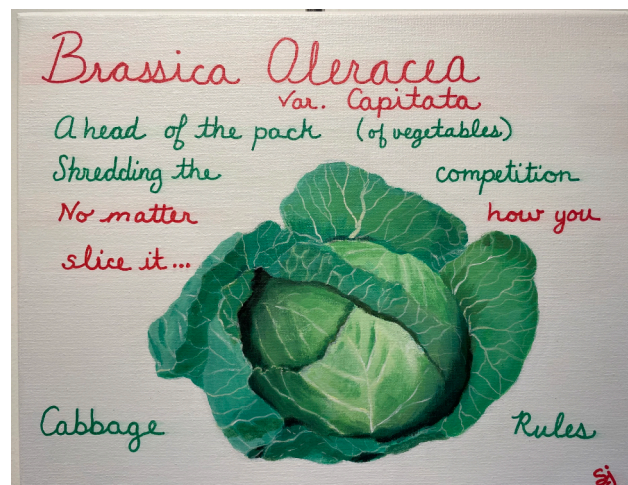 Brassica Oleracea
Var. Capitata
Ahead of the pack (of vegetables)
Shredding the competition
No matter how you
slice it...
Cabbage Rules
Sj